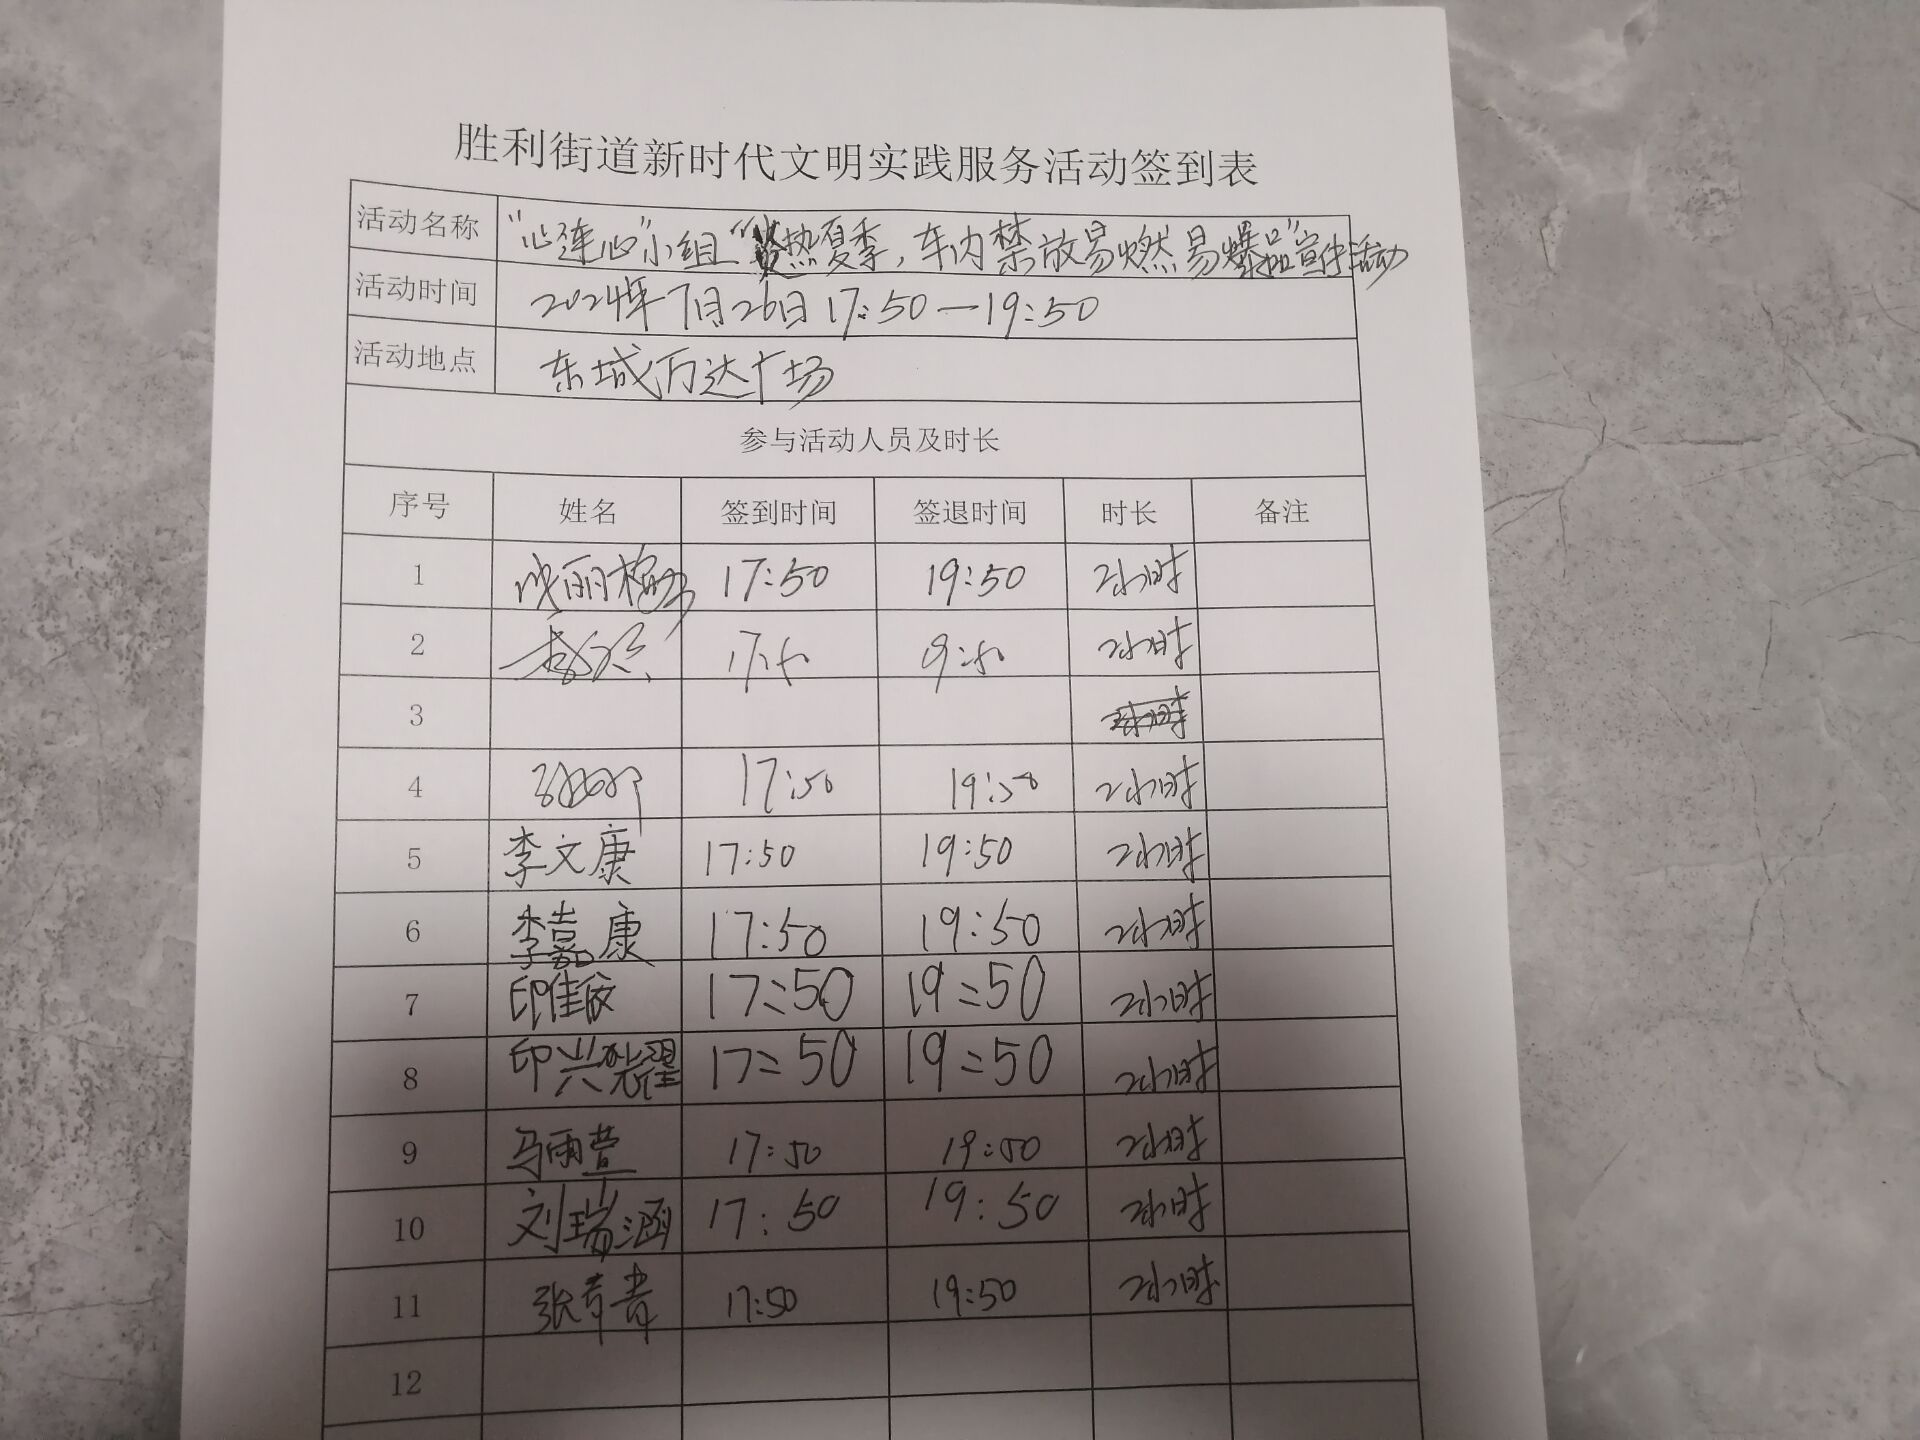 胜利街道新时代文明实践服务活动签到表
活动名称 "心连心"小组"炎热夏季,车内禁放易燃易爆品"宣传活动
活动时间 2024年7月26日17:50—19:50
活动地点 东城万达广场
参与活动人员及时长
序号 姓名 签到时间 签退时间 时长 备注
1 丽梅 17:50 19:50 2小时
2 17:50 19:50 2小时
3
4 17:50 19:50 2小时
5 李文康 17:50 19:50 2小时
6 李嘉康 17:50 19:50 2小时
7 印佳 17:50 19:50 2小时
8 印兴 17:50 19:50 2小时
9 马雨萱 17:50 19:50 2小时
10 刘瑞涵 17:50 19:50 2小时
11 张 青 17:50 19:50 2小时
12